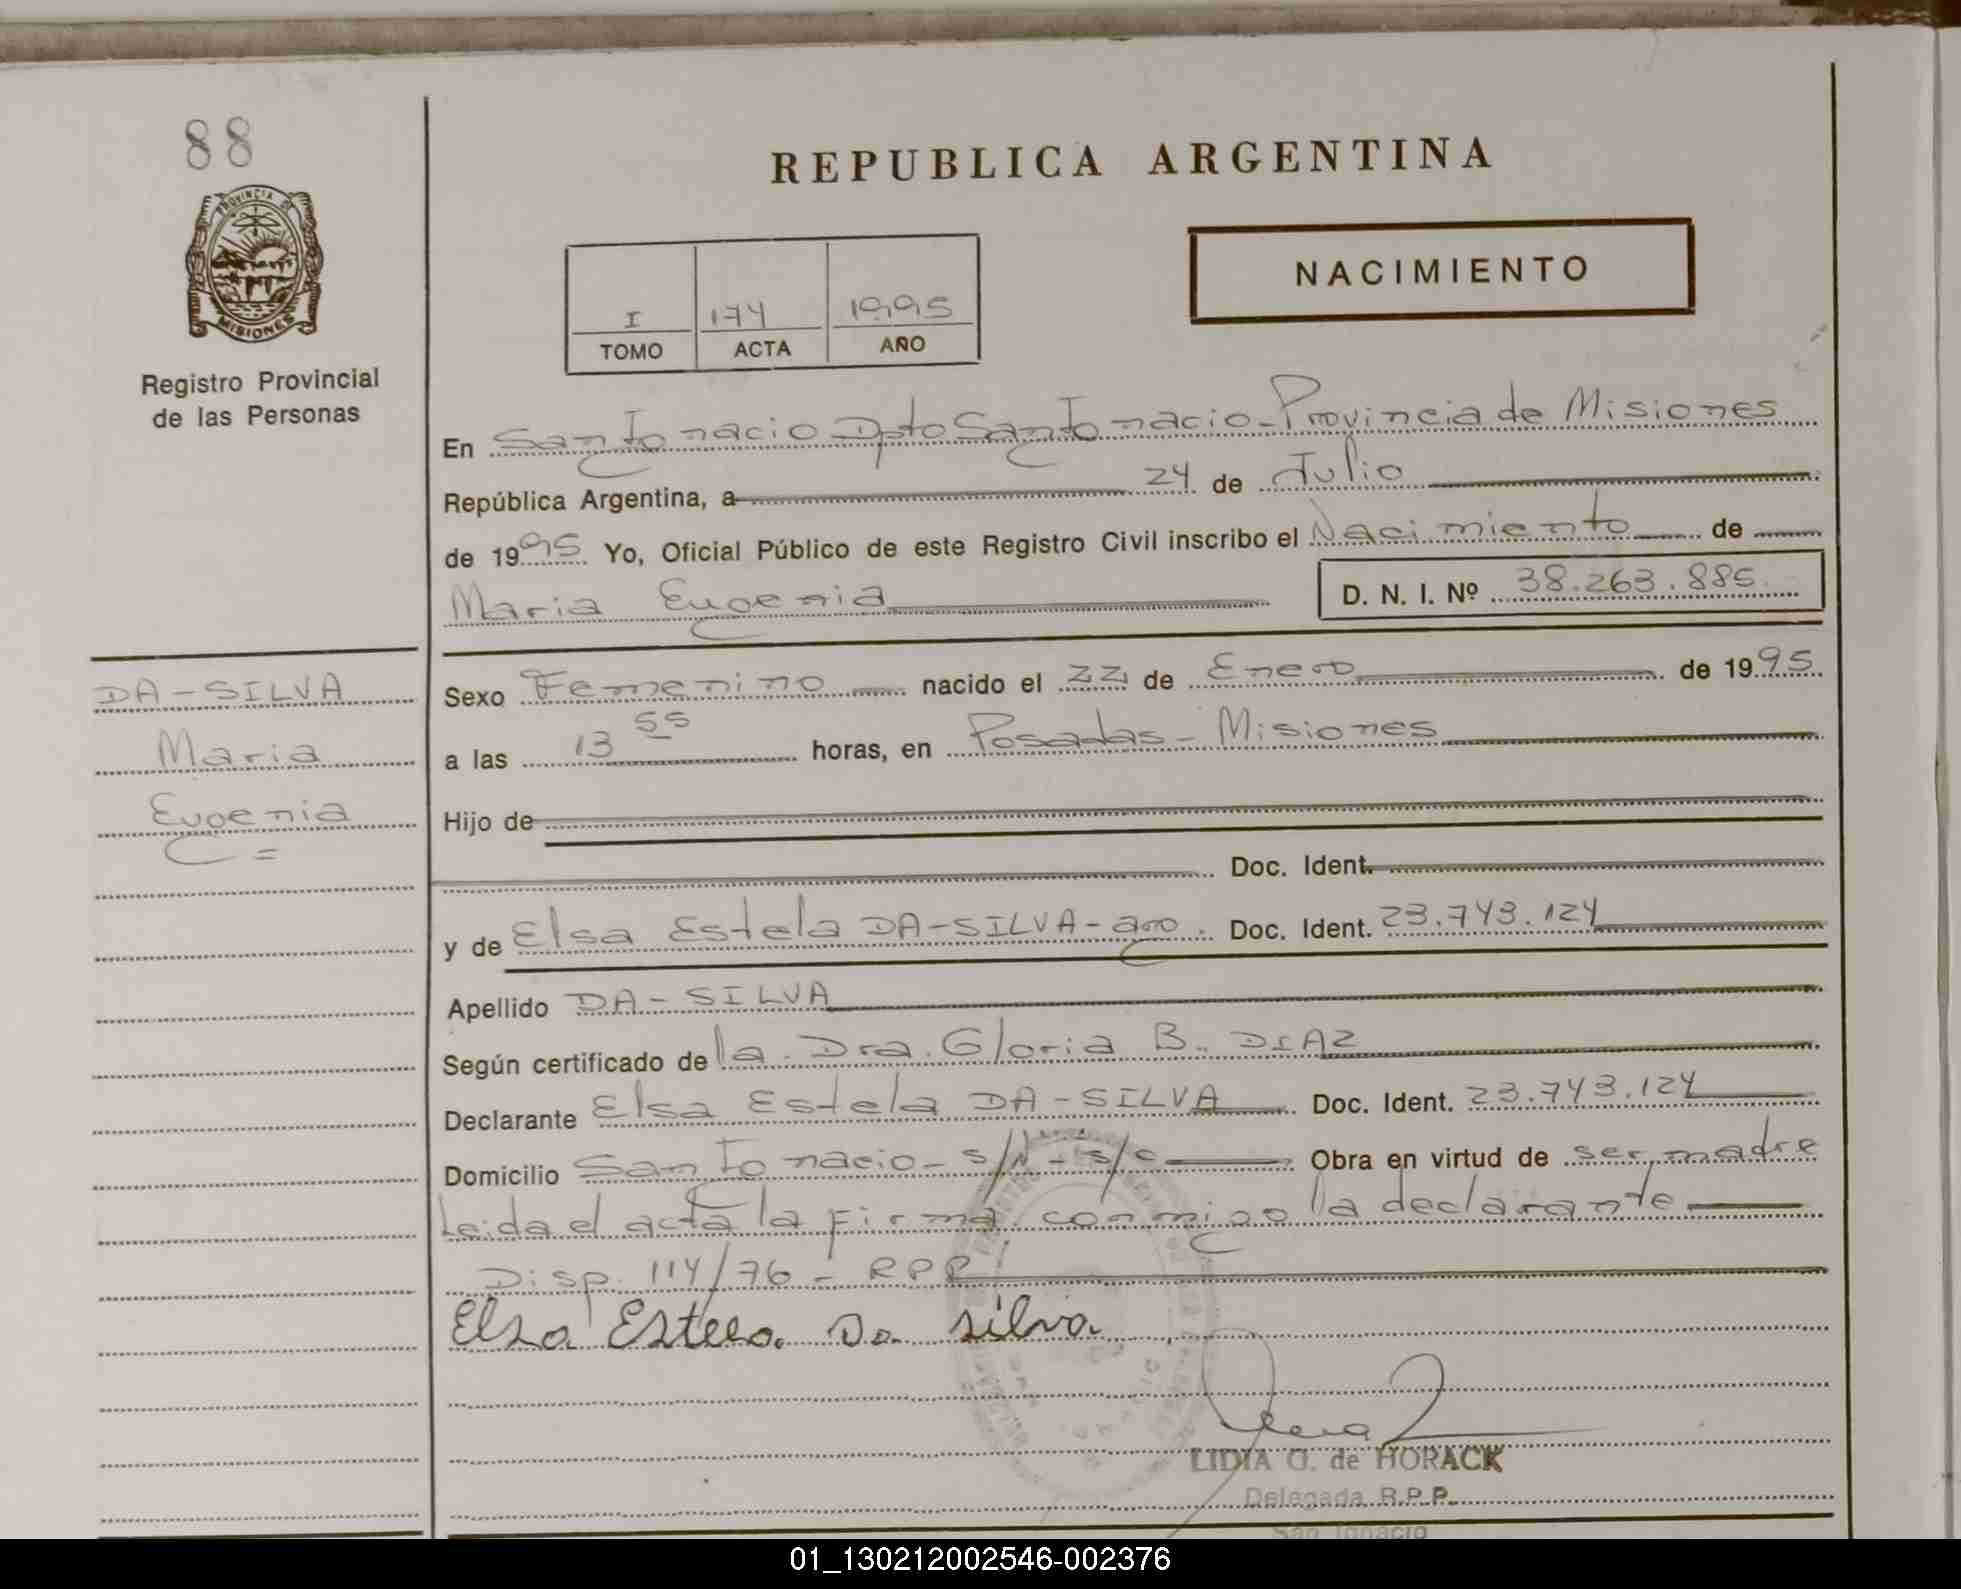 88
PROVINCIA DE
MISIONES
Registro Provincial
de las Personas
REPUBLICA ARGENTINA
NACIMIENTO
I 174 1995
TOMO ACTA AÑO
En San Ignacio Dpto San Ignacio - Provincia de Misiones
República Argentina, a 24 de Julio
de 1995 Yo, Oficial Público de este Registro Civil inscribo el Nacimiento de
Maria Eugenia D. N. I. Nº 38.263.885.
DA-SILVA
Maria
Eugenia =
Sexo Femenino nacido el 22 de Enero de 1995
a las 13 55 horas, en Posadas - Misiones
Hijo de
Doc. Ident.
y de Elsa Estela DA-SILVA - arg. Doc. Ident. 23.743.124
Apellido DA-SILVA
Según certificado de la Dra. Gloria B. DIAZ
Declarante Elsa Estela DA-SILVA Doc. Ident. 23.743.124
Domicilio San Ignacio - S/N - s/c Obra en virtud de ser madre
Leida el acta la Firma conmigo la declarante
Disp. 114/76 - RPP
Elsa Estela Da silva
LIDIA G. de HORACK
Delegada R.P.P.
San Ignacio
01_130212002546-002376